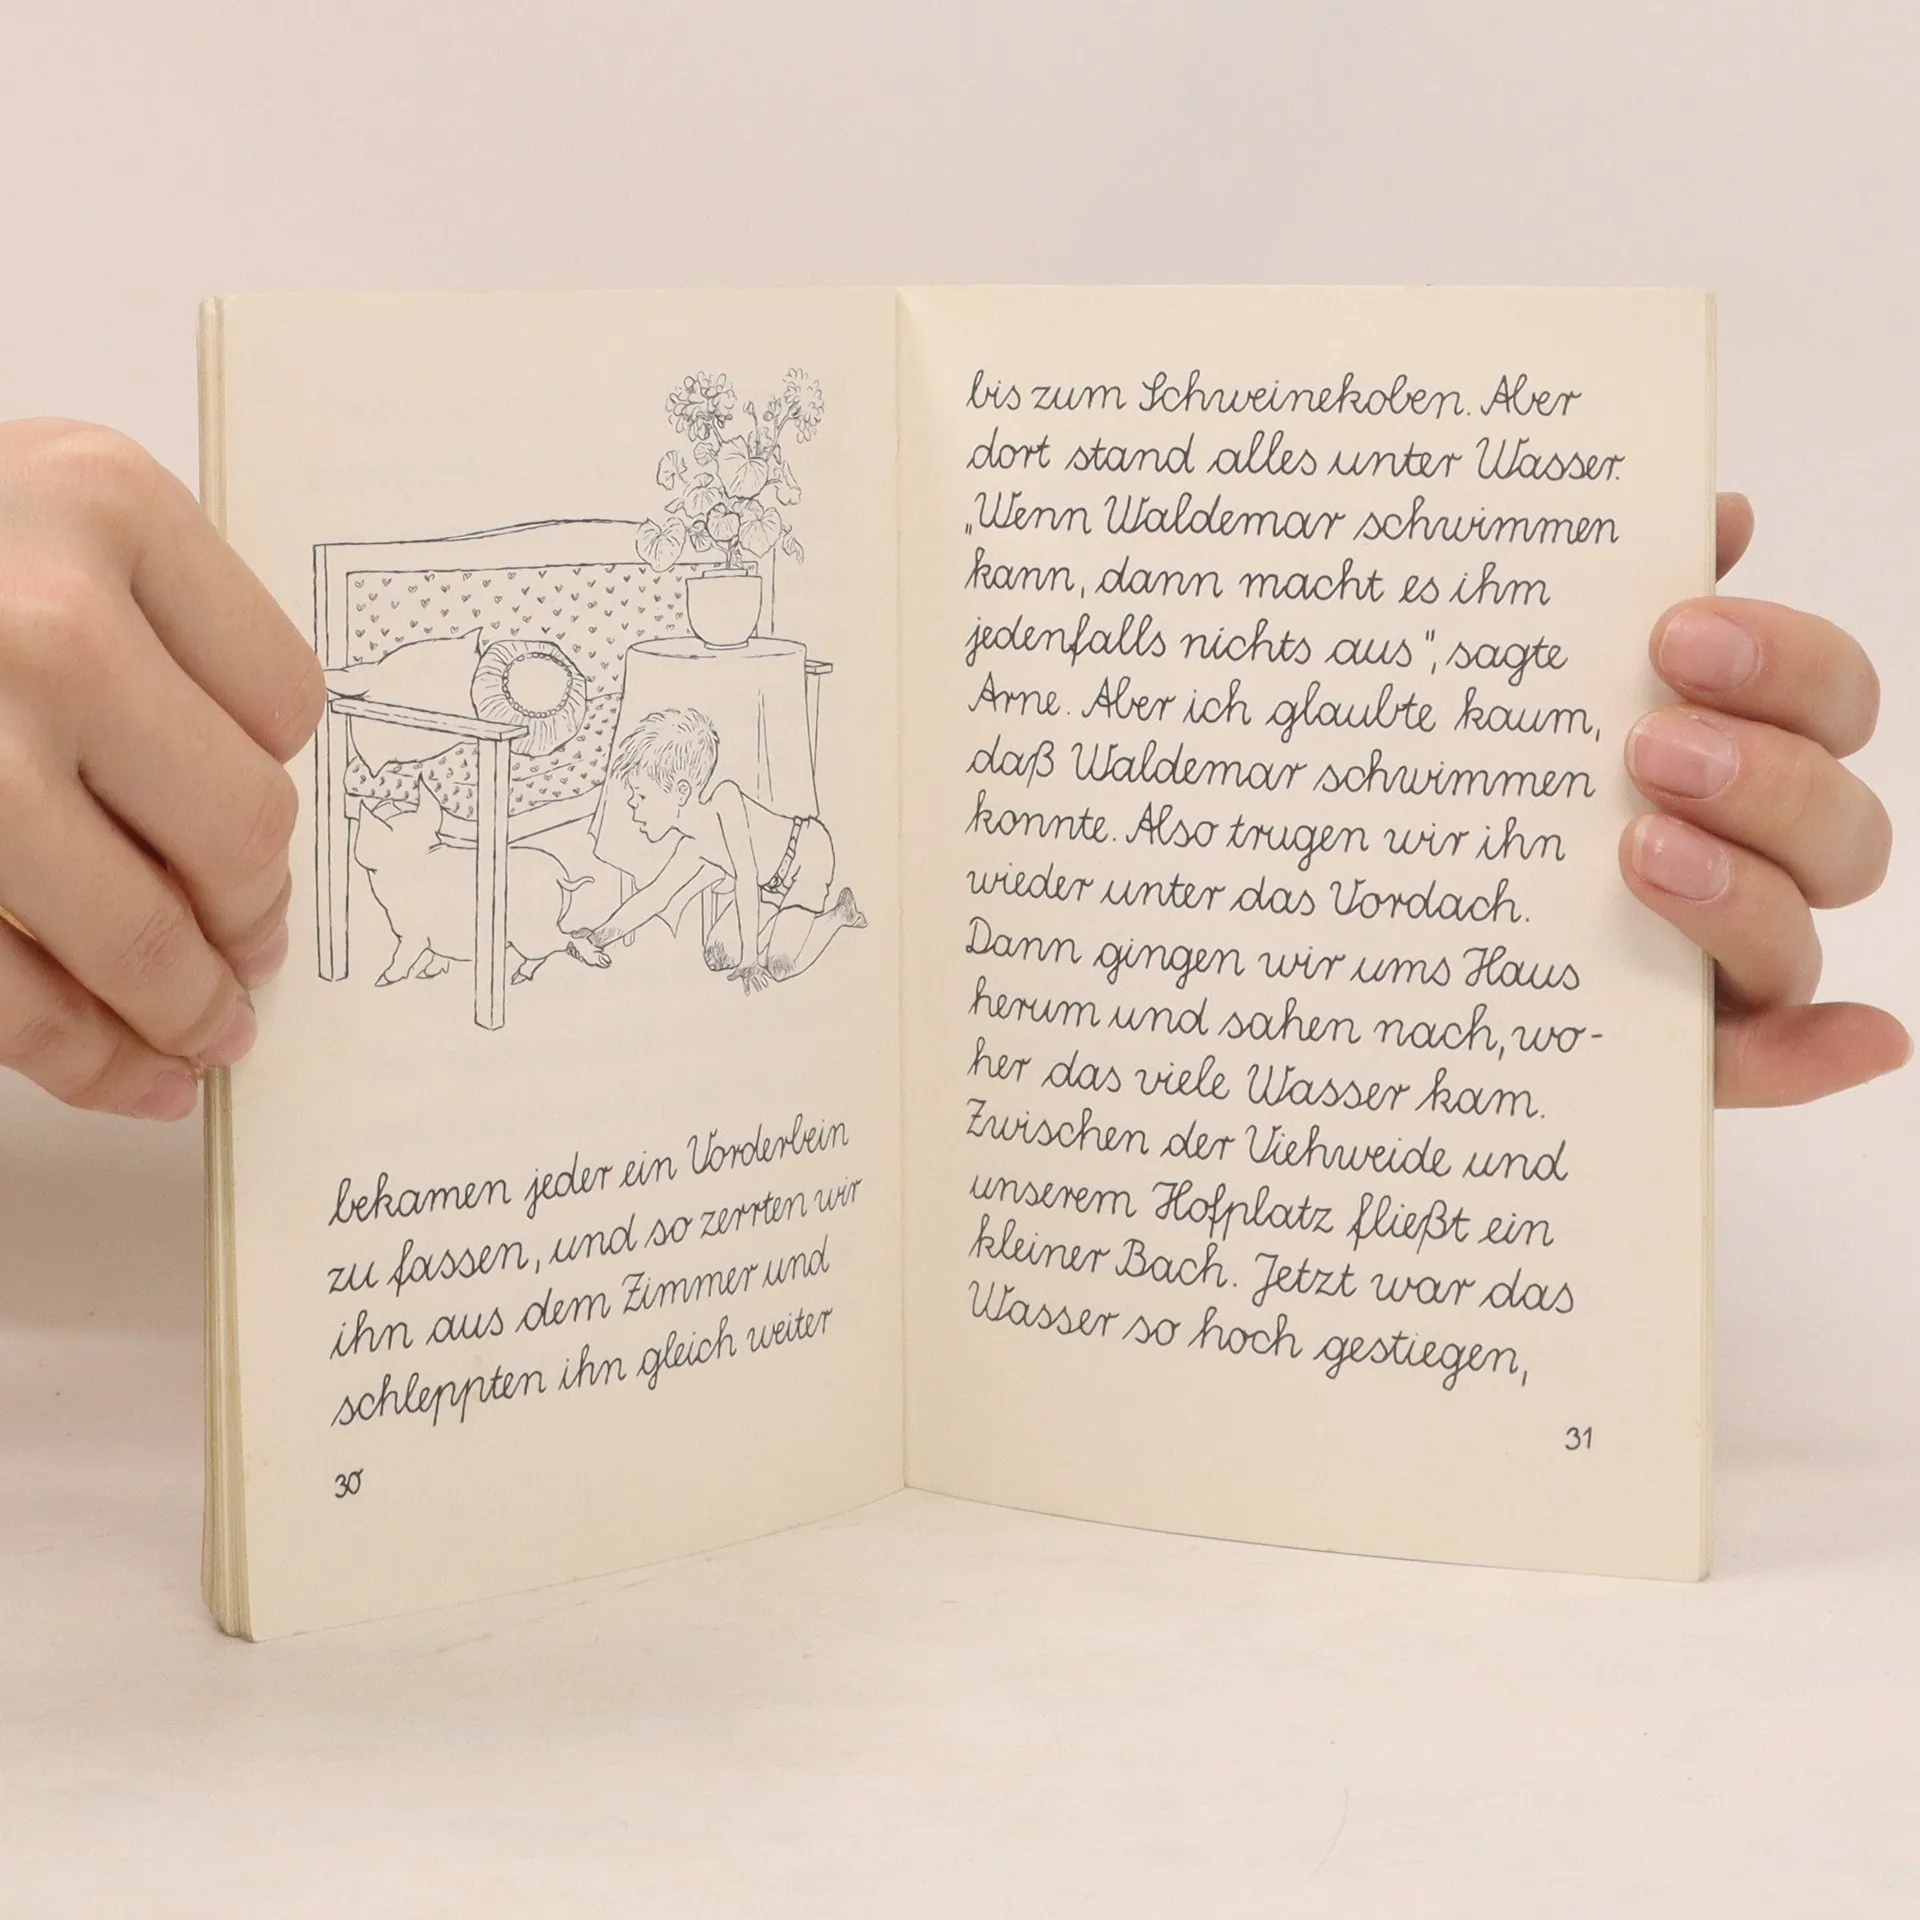 bekamen jeder ein Vorderbein
zu fassen, und so zerrten wir
ihn aus dem Zimmer und
schleppten ihn gleich weiter
30
bis zum Schweinekoben. Aber
dort stand alles unter Wasser.
„Wenn Waldemar schwimmen
kann, dann macht es ihm
jedenfalls nichts aus“, sagte
Arne. Aber ich glaubte kaum,
daß Waldemar schwimmen
konnte. Also trugen wir ihn
wieder unter das Vordach.
Dann gingen wir ums Haus
herum und sahen nach, wo-
her das viele Wasser kam.
Zwischen der Viehweide und
unserem Hofplatz fließt ein
kleiner Bach. Jetzt war das
Wasser so hoch gestiegen,
31